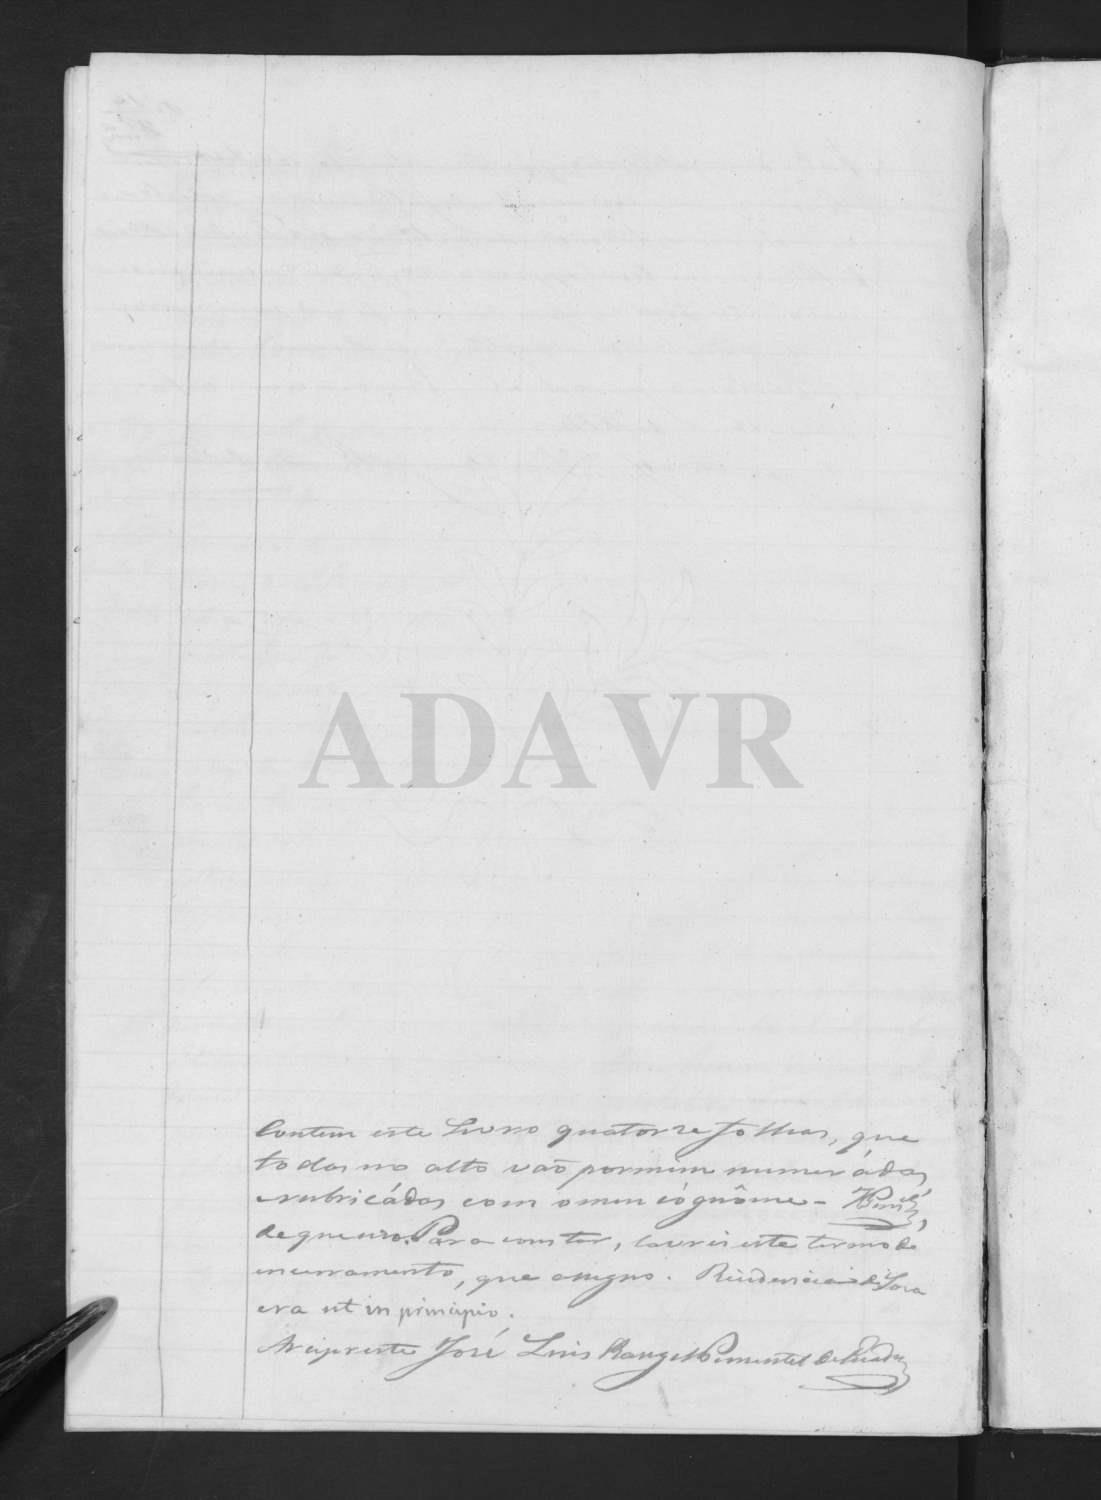 ADAVR
Contem este Livro quatorze folhas, que
todas no alto vão por mim numerádas,
e rubricádas com o meu cógnôme -
de que uso. Para constar, lavrei este termo de
encerramento, que assigno. Residencia
era ut in principio.
Arcipreste José Luis Rangel Pimentel de